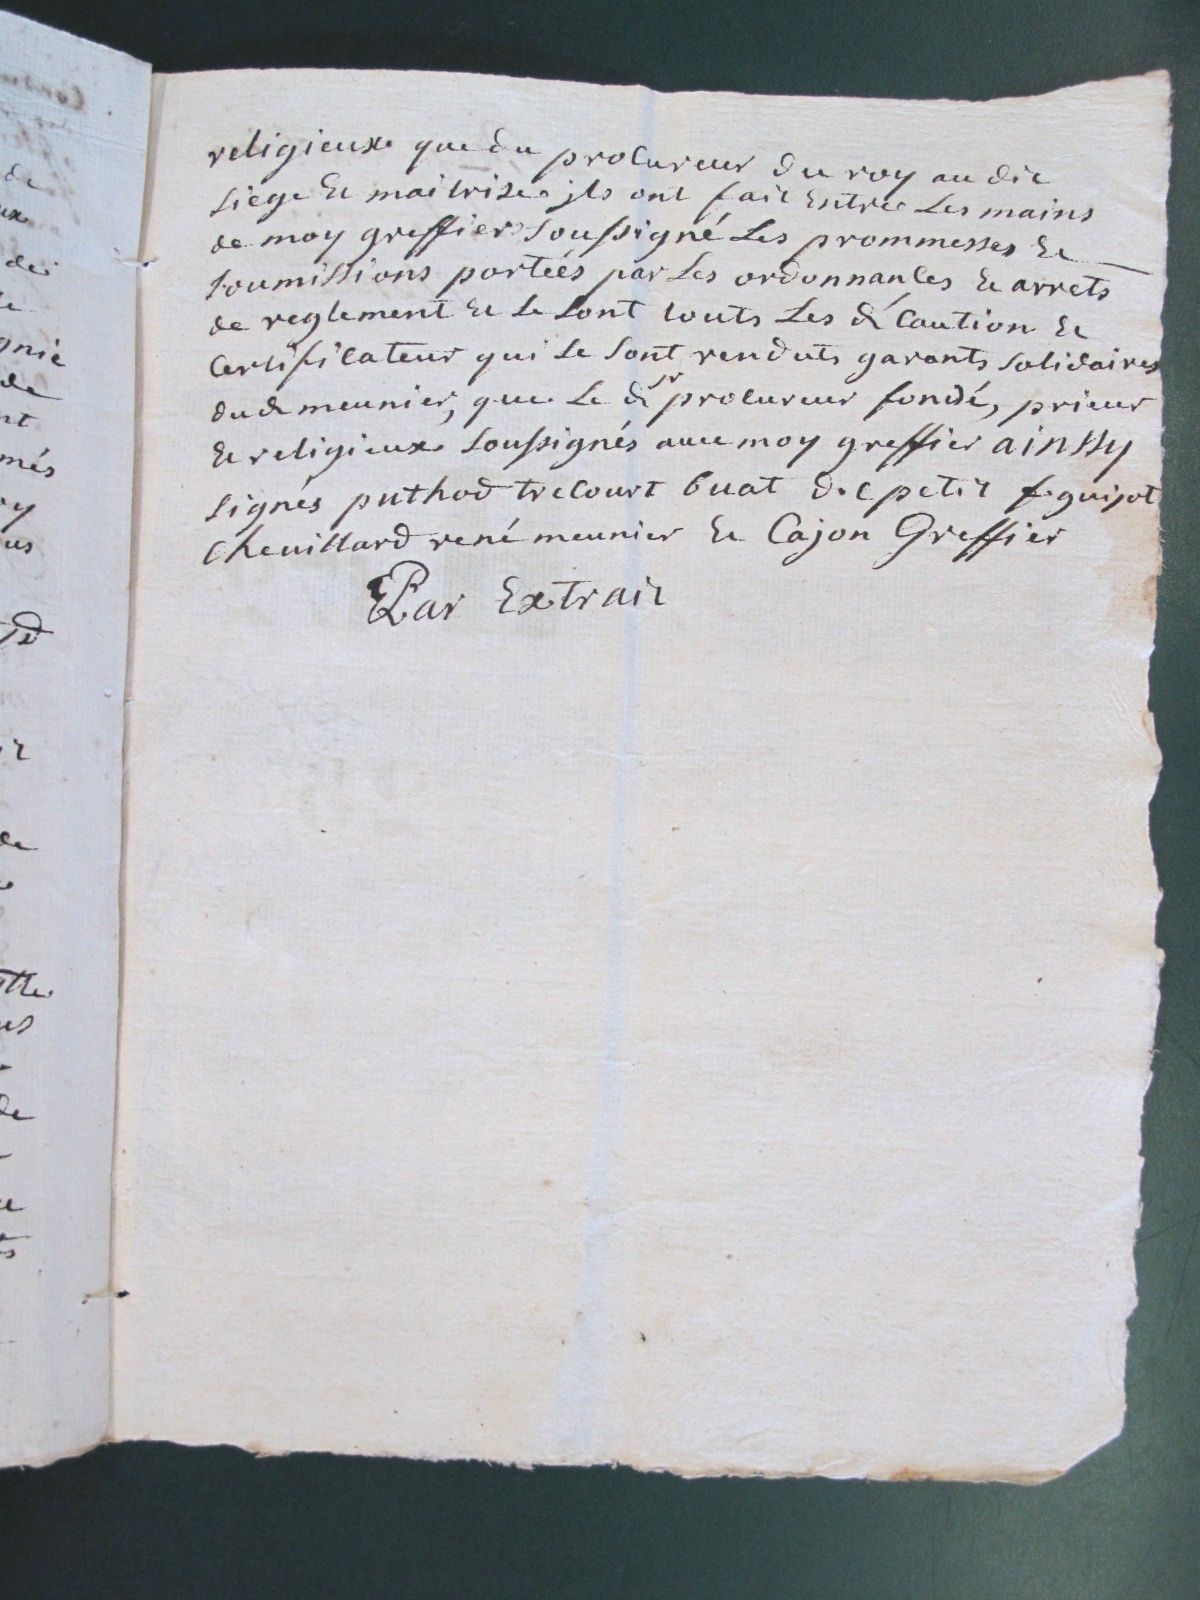 religieux que du procureur du roy au dit
siege et maitrise. jls ont fait entre les mains
de moy greffier soussigné les prommesses et
soumissions portéés par les ordonnances et arrets
de reglement et se sont touts les d. caution et
certificateur qui se sont renduts garants solidaires
dud meunier, que le d. sr procureur fondé, prieur
et religieux soussignés avec moy greffier ainssy
signés puthod trecourt buat d. c petit f. guijot
cheuillard rené meunier et Cajon Greffier
Par Extrait
de
ux
de
gnié
de
nt
més
oy
us
de
de